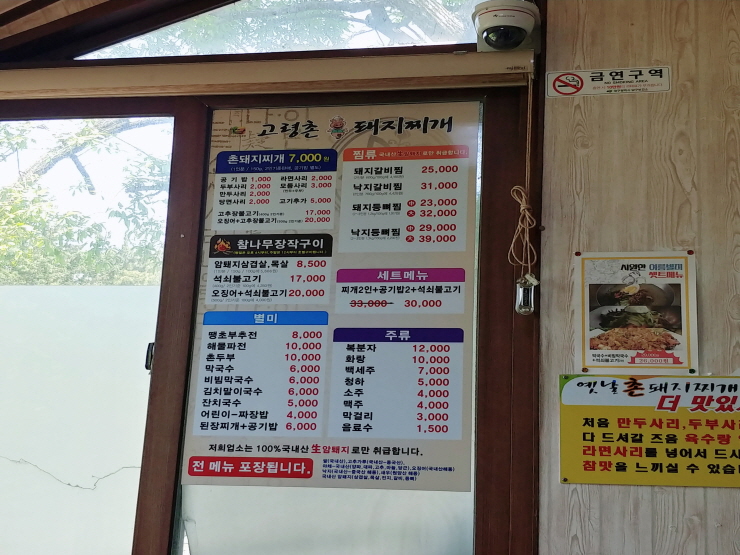 금연구역
NO SMOKING AREA
고령촌 돼지찌개
촌돼지찌개 7,000원
공기밥 1,000 라면사리 2,000
두부사리 2,000 모듬사리 3,000
만두사리 2,000
당면사리 2,000 고기추가 5,000
고추장불고기 17,000
오징어+고추장불고기 20,000
참나무장작구이
암돼지삼겹살,목살 8,500
석쇠불고기 17,000
오징어+석쇠불고기 20,000
별미
땡초부추전 8,000
해물파전 10,000
촌두부 10,000
막국수 6,000
비빔막국수 6,000
김치말이국수 6,000
잔치국수 5,000
어린이-짜장밥 4,000
된장찌개+공기밥 6,000
찜류 국내산 生암돼지로만 취급합니다.
돼지갈비찜 25,000
낙지갈비찜 31,000
돼지등뼈찜 中 23,000
大 32,000
낙지등뼈찜 中 29,000
大 39,000
세트메뉴
찌개2인+공기밥2+석쇠불고기
33,000 30,000
주류
복분자 12,000
화랑 10,000
백세주 7,000
청하 5,000
소주 4,000
맥주 4,000
막걸리 3,000
음료수 1,500
저희업소는 100%국내산 生암돼지로만 취급합니다.
전 메뉴 포장됩니다.
시원한 여름별미
셋트메뉴
막국수+비빔막국수
+석쇠불고기
옛날 촌돼지찌개
더 맛있
처음 만두사리,두부사
다 드셔갈 즈음 육수랑
라면사리를 넣어서 드시
참맛을 느끼실 수 있습